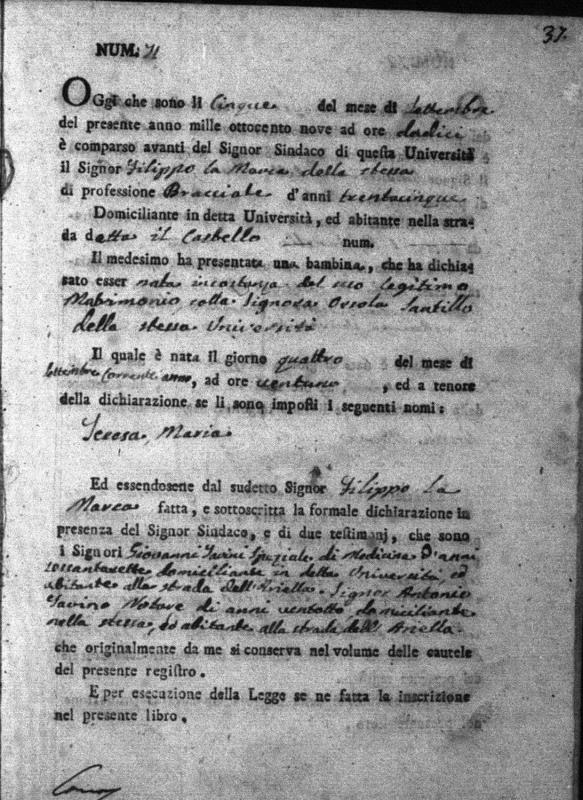 37.
NUM. 71
OGgi che sono li Cinque del mese di Settembre
del presente anno mille ottocento nove ad ore dodici
è comparso avanti del Signor Sindaco di questa Università
il Signor Filippo la Marca della stessa
di professione Bracciale d'anni trentacinque
Domiciliante in detta Università, ed abitante nella stra-
da detta il Castello num.
Il medesimo ha presentata una bambina, che ha dichia-
rato esser nata incostanza del suo legitimo
Matrimonio colla Signora Orsola Santillo
della stessa Università
Il quale è nata il giorno quattro del mese di
Settembre Corrente anno, ad ore ventuno, ed a tenore
della dichiarazione se li sono imposti i seguenti nomi:
Teresa, Maria
Ed essendosene dal sudetto Signor Filippo la
Marca fatta, e sottoscritta la formale dichiarazione in
presenza del Signor Sindaco, e di due testimonj, che sono
i Signori Giovanni Speziale di Medicina d'anni
sessantasette domiciliante in detta Università, ed
abitante alla strada dell'Ariella. Signor Antonio
Notare di anni ventotto domiciliante
nella stessa, ed abitante alla strada dell' Ariella.
che originalmente da me si conserva nel volume delle cautele
del presente registro.
E per esecuzione della Legge se ne fatta la inscrizione
nel presente libro.